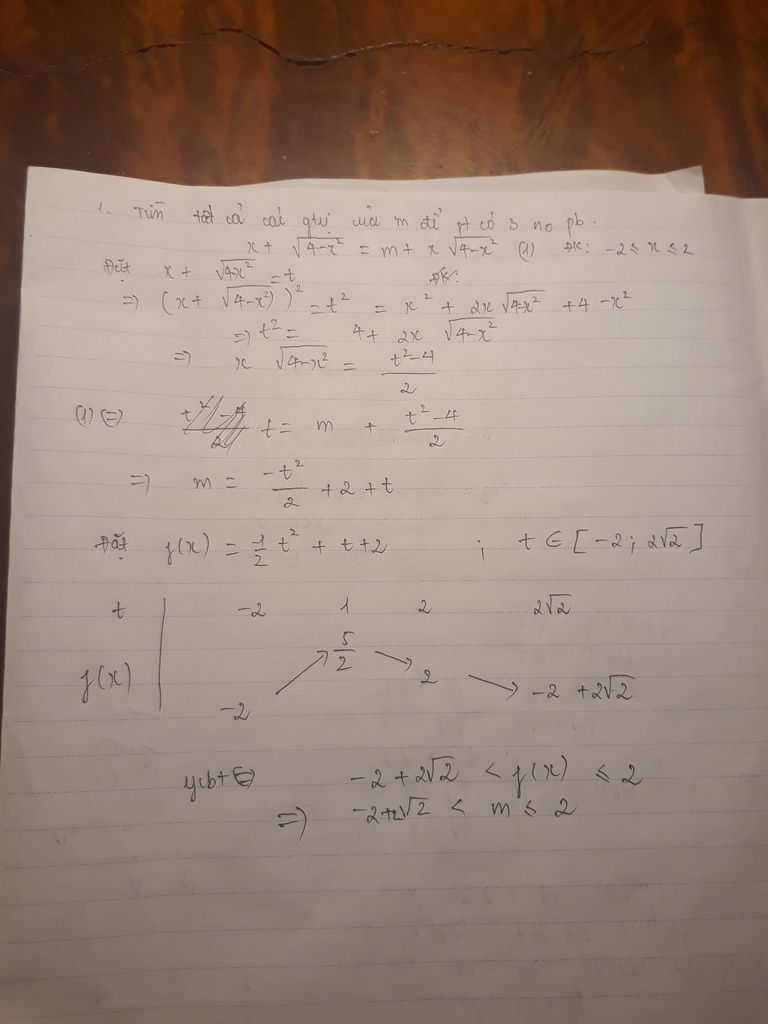 1. Tìm tất cả các gtrị của m để pt có 3 no pb.
x + √(4-x²) = m + x √(4-x²) (1) ĐK: -2 ≤ x ≤ 2
Đặt x + √(4-x²) = t ĐK:
=> (x + √(4-x²))² = t² = x² + 2x √(4-x²) + 4 - x²
=> t² = 4 + 2x √(4-x²)
=> x √(4-x²) = (t²-4)/2
(1) <=> t = m + (t²-4)/2
=> m = -t²/2 + 2 + t
Đặt f(x) = -1/2 t² + t + 2 ; t ∈ [-2; 2√2]
t -2 1 2 2√2
f(x) -2 ↗ 5/2 ↘ 2 ↘ -2 + 2√2
ycbt <=> -2 + 2√2 < f(x) ≤ 2
=> -2+2√2 < m ≤ 2